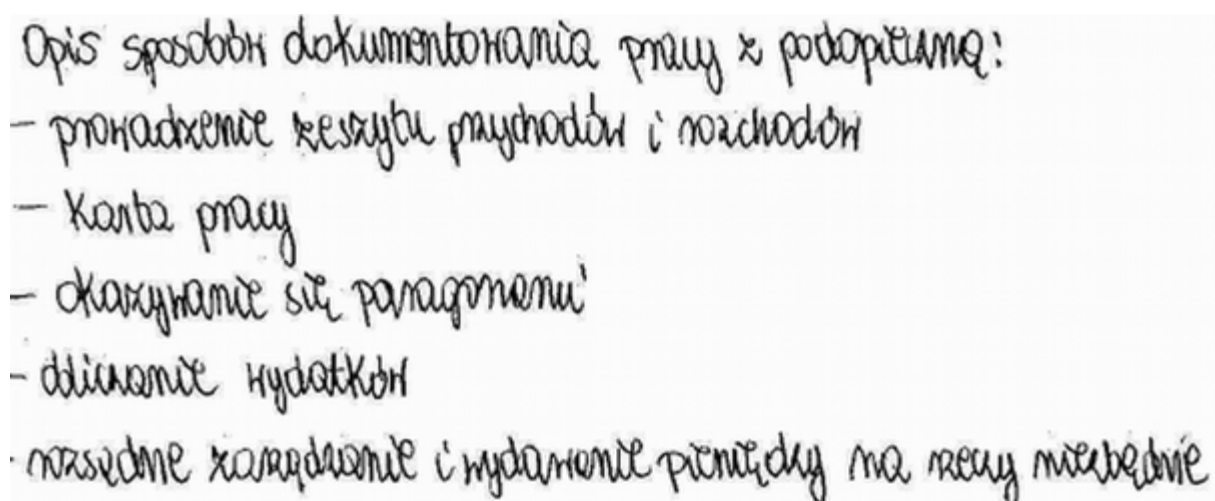 Opis sposobów dokumentowania pracy z podopieczną:
- prowadzenie zeszytu przychodów i rozchodów
- Karta pracy
- okazywanie się paragonami
- obliczanie wydatków
- rozsądne zarządzanie i wydawanie pieniędzy na rzeczy niezbędnie